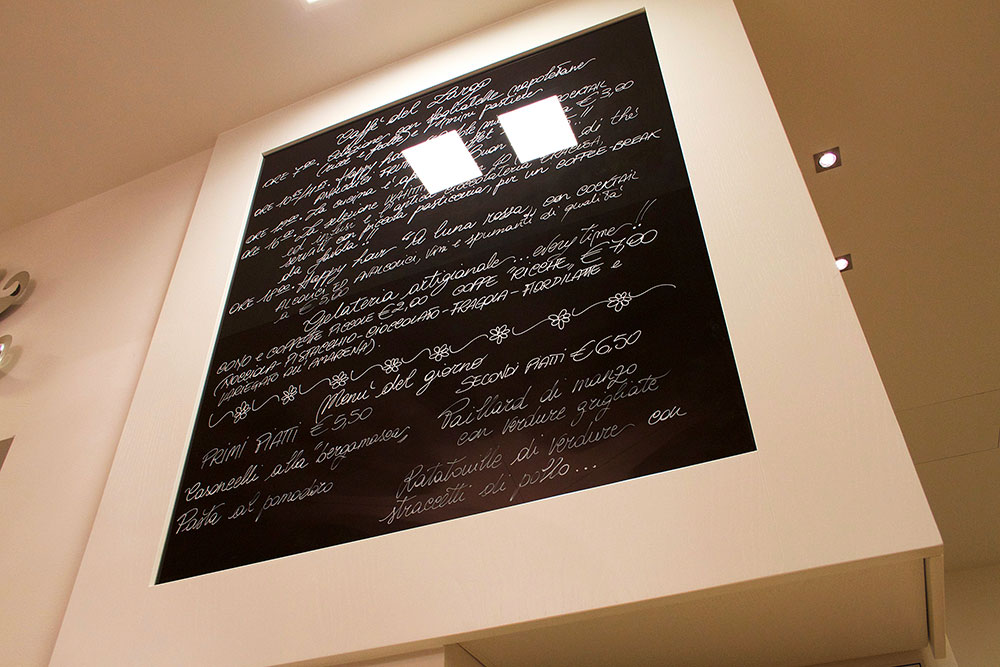 Caffè del Largo
ORE 7:00. Colazione con sfogliatelle napoletane
(ricce e frolle) e mini pastiere
Happy hour COCKTAIL
ANALCOLICO € 3,00
La cucina è Buon
ORE 16:00. La selezione di thé
ed infusi e l'antica cioccolateria
serviti con piccola pasticceria, per un COFFEE-BREAK
da favola!!
ORE 18:00. Happy hour "A luna rossa", con COCKTAIL
ALCOLICI ED ANALCOLICI, vini e spumanti di qualità
a € 5,00
Gelateria artigianale... every time!!
CONO e COPPETTE PICCOLE € 2,00 COPPE "RICCHE"
(NOCCIOLA-PISTACCHIO-CIOCCOLATO-FRAGOLA-FIORDILATTE e
VARIEGATO ALL'AMARENA).
Menù del giorno
PRIMI PIATTI € 5,50
Casoncelli alla "bergamasca"
Pasta al pomodoro
SECONDI PIATTI € 6,50
Paillard di manzo
con verdure grigliate
Ratatouille di verdure con
straccetti di pollo...